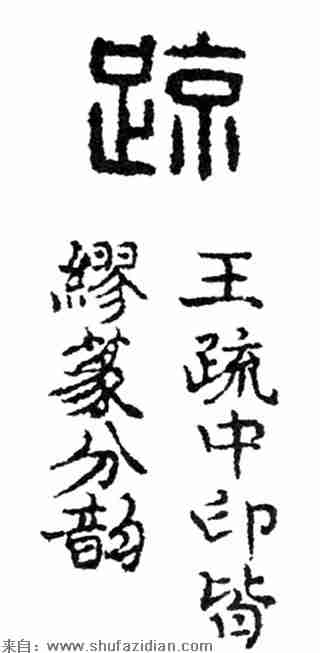 疏
王疏中印皆
繆篆分韵
来自：www.shufazidian.com